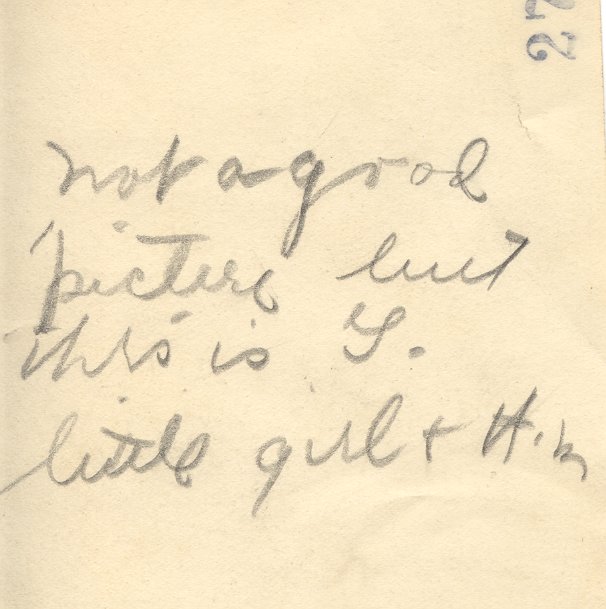 27
not a good
picture but
this is Y.
little girl & Him